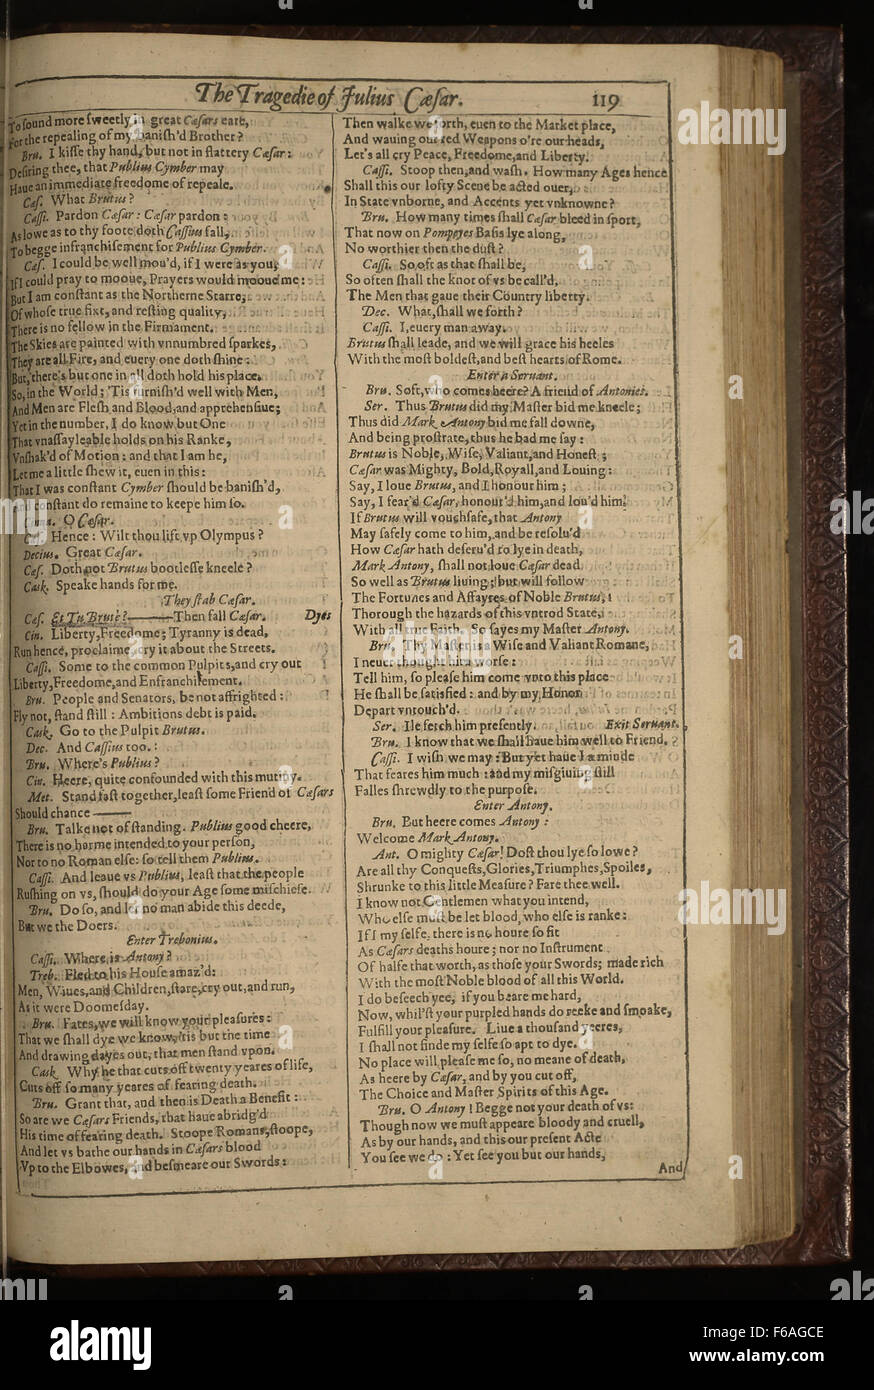 The Tragedie of Julius Cæsar. 119
To sound more sweetly in great Cæsars eare,
For the repealing of my banish'd Brother?
Bru. I kisse thy hand, but not in flattery Cæsar:
Desiring thee, that Publius Cymber may
Haue an immediate freedome of repeale.
Cæs. What Brutus?
Cassi. Pardon Cæsar: Cæsar pardon:
As lowe as to thy foote doth Cassius fall,
To begge infranchisement for Publius Cymber.
Cæs. I could be well mou'd, if I were as you,
If I could pray to mooue, Prayers would mooue me:
But I am constant as the Northerne Starre,
Of whose true fixt, and resting quality,
There is no fellow in the Firmament.
The Skies are painted with vnnumbred sparkes,
They are all Fire, and euery one doth shine:
But, there's but one in all doth hold his place.
So, in the World; 'Tis furnish'd well with Men,
And Men are Flesh and Blood, and apprehensiue;
Yet in the number, I do know but One
That vnassayleable holds on his Ranke,
Vnshak'd of Motion: and that I am he,
Let me a little shew it, euen in this:
That I was constant Cymber should be banish'd,
And constant do remaine to keepe him so.
Cinna. O Cæsar.
Cæs. Hence: Wilt thou lift vp Olympus?
Decius. Great Cæsar.
Cæs. Doth not Brutus bootlesse kneele?
Cask. Speake hands for me.
They stab Cæsar.
Cæs. Et Tu Brutè?——Then fall Cæsar. Dyes
Cin. Liberty, Freedome; Tyranny is dead,
Run hence, proclaime, cry it about the Streets.
Cassi. Some to the common Pulpits, and cry out
Liberty, Freedome, and Enfranchisement.
Bru. People and Senators, be not affrighted:
Fly not, stand still: Ambitions debt is paid.
Cask. Go to the Pulpit Brutus.
Dec. And Cassius too.:
Bru. Where's Publius?
Cin. Heere, quite confounded with this mutiny.
Met. Stand fast together, least some Friend of Cæsars
Should chance——
Bru. Talke not of standing. Publius good cheere,
There is no harme intended to your person,
Nor to no Roman else: so tell them Publius.
Cassi. And leaue vs Publius, least that the people
Rushing on vs, should do your Age some mischiefe.
Bru. Do so, and let no man abide this deede,
But we the Doers.
Enter Trebonius.
Cassi. Where is Antony?
Treb. Fled to his House amaz'd:
Men, Wiues, and Children, stare, cry out, and run,
As it were Doomesday.
Bru. Fates, we will know your pleasures:
That we shall dye we know, 'tis but the time
And drawing dayes out, that men stand vpon.
Cask. Why he that cuts off twenty yeares of life,
Cuts off so many yeares of fearing death.
Bru. Grant that, and then is Death a Benefit:
So are we Cæsars Friends, that haue abridg'd
His time of fearing death. Stoope Romans, stoope,
And let vs bathe our hands in Cæsars blood
Vp to the Elbowes, and besmeare our Swords:
Then walke we forth, euen to the Market place,
And wauing our red Weapons o're our heads,
Let's all cry Peace, Freedome, and Liberty.
Cassi. Stoop then, and wash. How many Ages hence
Shall this our lofty Scene be acted ouer,
In State vnborne, and Accents yet vnknowne?
Bru. How many times shall Cæsar bleed in sport,
That now on Pompeyes Basis lye along,
No worthier then the dust?
Cassi. So oft as that shall be,
So often shall the knot of vs be call'd,
The Men that gaue their Country liberty.
Dec. What, shall we forth?
Cassi. I, euery man away.
Brutus shall leade, and we will grace his heeles
With the most boldest, and best hearts of Rome.
Enter a Seruant.
Bru. Soft, who comes heere? A friend of Antonies.
Ser. Thus Brutus did my Master bid me kneele;
Thus did Mark Antony bid me fall downe,
And being prostrate, thus he bad me say:
Brutus is Noble, Wise, Valiant, and Honest;
Cæsar was Mighty, Bold, Royall, and Louing:
Say, I loue Brutus, and I honour him;
Say, I fear'd Cæsar, honour'd him, and lou'd him.
If Brutus will vouchsafe, that Antony
May safely come to him, and be resolu'd
How Cæsar hath deseru'd to lye in death,
Mark Antony, shall not loue Cæsar dead
So well as Brutus liuing; but will follow
The Fortunes and Affayres of Noble Brutus,
Thorough the hazards of this vntrod State,
With all true Faith. So sayes my Master Antony.
Bru. Thy Master is a Wise and Valiant Romane,
I neuer thought him worse:
Tell him, so please him come vnto this place
He shall be satisfied: and by my Honor
Depart vntouch'd.
Ser. Ile fetch him presently. Exit Seruant.
Bru. I know that we shall haue him well to Friend.
Cassi. I wish we may: But yet haue I a minde
That feares him much: and my misgiuing still
Falles shrewdly to the purpose.
Enter Antony.
Bru. But heere comes Antony:
Welcome Mark Antony.
Ant. O mighty Cæsar! Dost thou lye so lowe?
Are all thy Conquests, Glories, Triumphes, Spoiles,
Shrunke to this little Measure? Fare thee well.
I know not Gentlemen what you intend,
Who else must be let blood, who else is ranke:
If I my selfe, there is no houre so fit
As Cæsars deaths houre; nor no Instrument
Of halfe that worth, as those your Swords; made rich
With the most Noble blood of all this World.
I do beseech yee, if you beare me hard,
Now, whil'st your purpled hands do reeke and smoake,
Fulfill your pleasure. Liue a thousand yeeres,
I shall not finde my selfe so apt to dye.
No place will please me so, no meane of death,
As heere by Cæsar, and by you cut off,
The Choice and Master Spirits of this Age.
Bru. O Antony! Begge not your death of vs:
Though now we must appeare bloody and cruell,
As by our hands, and this our present Acte
You see we do: Yet see you but our hands,
And
alamy
Image ID: F6AGCE
www.alamy.com